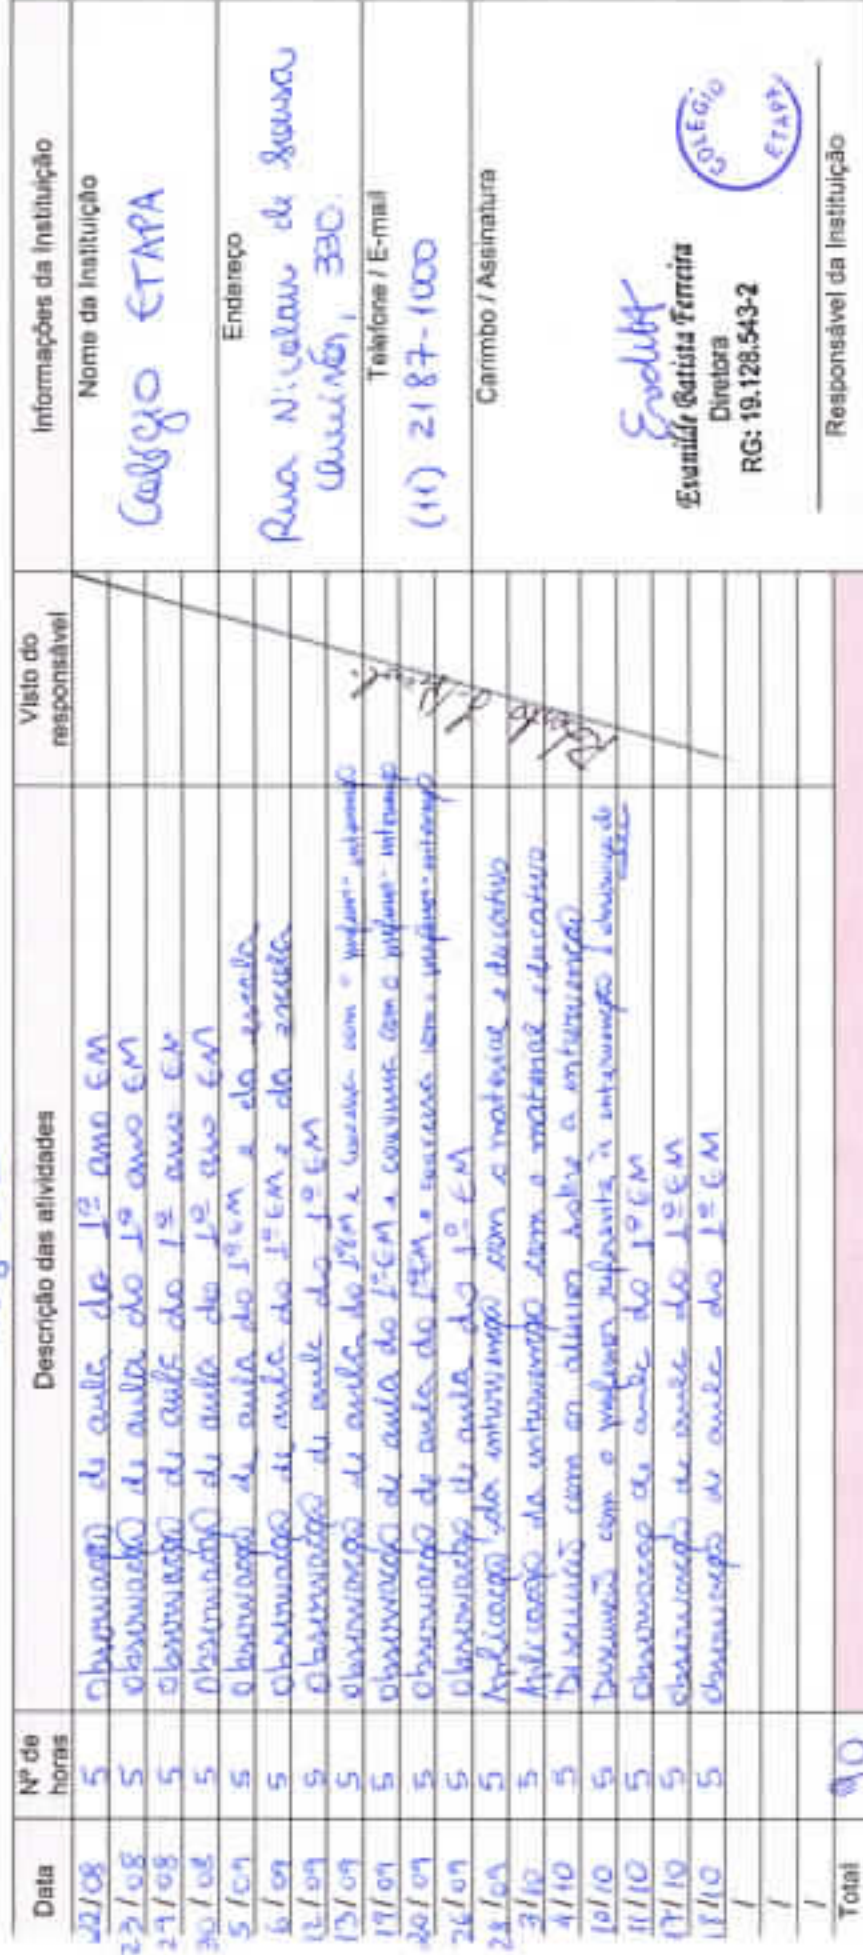 Data Nº de horas Descrição das atividades Visto do responsável Informações da Instituição
22/08 5 Observação de aula do 1º ano EM
23/08 5 Observação de aula do 1º ano EM
29/08 5 Observação de aula do 1º ano EM
30/08 5 Observação de aula do 1º ano EM
5/09 5 Observação de aula do 1º EM e da escola
6/09 5 Observação de aula do 1º EM e da escola
12/09 5 Observação de aula do 1º EM
13/09 5 Observação de aula do 1º EM e conversa com o professor - intervenção
19/09 5 Observação de aula do 1º EM e conversa com o professor - intervenção
20/09 5 Observação de aula do 1º EM e conversa com o professor - intervenção
26/09 5 Observação de aula do 1º EM
28/09 5 Aplicação da intervenção com o material educativo
3/10 5 Aplicação da intervenção com o material educativo
4/10 5 Discussão com os alunos sobre a intervenção
10/10 5 Discussão com o professor referente à intervenção
11/10 5 Observação de aula do 1º EM
17/10 5 Observação de aula do 1º EM
18/10 5 Observação de aula do 1º EM
/
/
/
Total 90
Nome da Instituição
Colégio ETAPA
Endereço
Rua Nicolau de Sousa
330.
Telefone / E-mail
(11) 2187-1000
Carimbo / Assinatura
Evanilde Batista Ferreira
Diretora
RG: 19.128.543-2
COLÉGIO
ETAPA
Responsável da Instituição